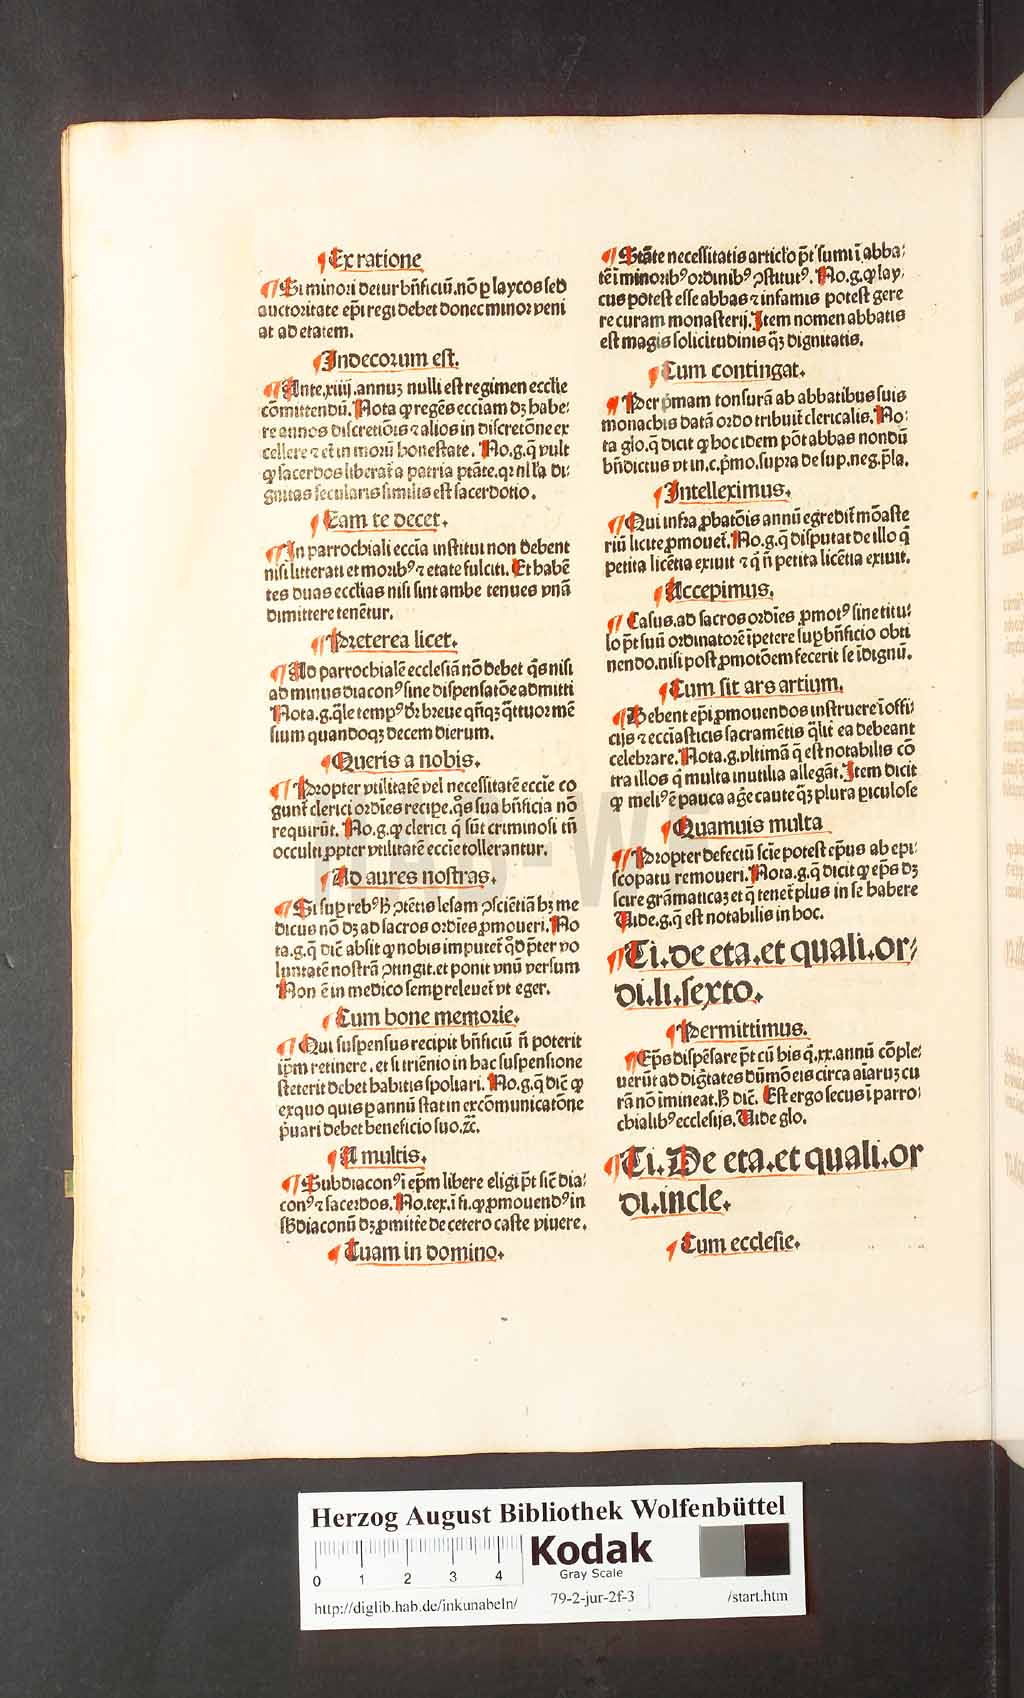 ¶ Ex ratione
¶ Si minori detur bn̄ficiū, nō ꝑ laycos sed
auctoritate ep̄i regi debet donec minor veni
at ad etatem.
¶ Indecorum est.
¶ Ante .xiiij. annuꝫ nulli est regimen ecclie
cōmittendū. Nota ꝙ regēs ecciam dꝫ habe⸗
re annos discretiōis ⁊ alios in discretōne ex
cellere ⁊ etī in morū honestate. No.g.q̄ vult
ꝙ sacerdos liberat̄ a patria ptāte.qꝛ nl̄la di⸗
gnitas secularis similis est sacerdotio.
¶ Eam te decet.
¶ In parrochiali eccīa institui non debent
nisi litterati et moribꝰ ⁊ etate fulciti. Et habē
tes duas ecclias nisi sint ambe tenues vnā
dimittere tenētur.
¶ Preterea licet.
¶ Ad parrochialē ecclesiā nō debet q̄s nisi
ad minus diaconꝰ sine dispensatōe admitti
Nota.g.q̄le tempꝰ dr̄ breue qn̄qꝫ q̄ttuor mē
sium quandoqꝫ decem dierum.
¶ Queris a nobis.
¶ Propter vtilitatē vel necessitatē eccīe co
gunt̄ clerici ordīes recipe.q̄s sua bn̄ficia nō
requirūt. No.g.ꝙ clerici q̄ sūt criminosi tn̄
occulti ꝓpter vtilitatē eccīe tollerantur.
¶ Ad aures nostras.
¶ Si suꝑ rebꝰ ꝯtētis lesam ꝯsciētiā hꝫ me
dicus nō dꝫ ad sacros ordīes ꝓmoueri. No
ta.g.q̄ dic̄ absit ꝙ nobis imputet̄ qd̄ p̄ter vo
luntatē nostrā ꝯtingit.et ponit vnū versum
Non ē in medico semꝑ releuet̄ vt eger.
¶ Cum bone memorie.
¶ Qui suspensus recipit bn̄ficiū n̄ poterit
ip̄m retinere. et si triēnio in hac suspensione
steterit debet habitis spoliari. No.g.q̄ dic̄ ꝙ
exquo quis ꝑ annū stat in excōmunicatōne
p̄uari debet beneficio suo.ꝛc̄.
¶ A multis.
¶ Subdiaconꝰ ī ep̄m libere eligi pt̄ sic̄ dia⸗
conꝰ ⁊ sacerdos. No.tex.ī fi.ꝙ ꝓmouendꝰ in
sb̄diaconū dꝫ ꝓmitte de cetero caste viuere.
¶ Tuam in domino.
¶ Stāte necessitatis articlo pt̄ sumi ī abba⸗
tē ī minoribꝰ ordinibꝰ ꝯstitutꝰ. No.g.ꝙ lay⸗
cus potest esse abbas ⁊ infamis potest gere
re curam monasterij. Item nomen abbatis
est magis solicitudinis q̄ꝫ dignitatis.
¶ Cum contingat.
¶ Per p̄mam tonsurā ab abbatibus suis
monachis datā ordo tribuit̄ clericalis. No⸗
ta glo.q̄ dicit ꝙ hoc idem pōt abbas nondū
bn̄dictus vt in.c.p̄mo.supra de sup.neg.p̄la.
¶ Intelleximus.
¶ Qui infra ꝓbatōis annū egredit̄ mōaste
riū licite ꝓmouet̄. No.g.q̄ disputat de illo q̄
petita licētia exiuit ⁊ q̄ n̄ petita licētia exiuit.
¶ Accepimus.
¶ Casus.ad sacros ordīes ꝓmotꝰ sine titu⸗
lo pt̄ suū ordinatorē īpetere suꝑ bn̄ficio obti
nendo.nisi post ꝓmotōem fecerit se īdignū.
¶ Cum sit ars artium.
¶ Debent ep̄i ꝓmouendos instruere ī offi⸗
cijs ⁊ eccīasticis sacramētis q̄lit̄ ea debeant
celebrare. Nota.g.vltimā q̄ est notabilis cō
tra illos q̄ multa inutilia allegāt. Item dicit
ꝙ meliꝰ ē pauca aḡe caute q̄ꝫ plura ꝑiculose
¶ Quamuis multa
¶ Propter defectū scīe potest ep̄us ab epi⸗
scopatu remoueri. Nota.g.q̄ dicit ꝙ ep̄s dꝫ
scire grāmaticaꝫ et q̄ tenet̄ plus in se habere
Vide.g.q̄ est notabilis in hoc.
¶ Ti.de eta.et quali.or⸗
di.li.sexto.
¶ Permittimus.
¶ Ep̄s dispēsare pt̄ cū his q̄.xx.annū cōple⸗
uerūt ad diḡtates dūmō eis circa aīaruꝫ cu
rā nō imineat. dic̄. Est ergo secus ī parro⸗
chialibꝰ ecclesijs. Vide glo.
¶ Ti. De eta.et quali.or
di.incle.
¶ Cum ecclesie.
HAB-WF
Herzog August Bibliothek Wolfenbüttel
0 1 2 3 4
Kodak
Gray Scale
http://diglib.hab.de/inkunabeln/ 79-2-jur-2f-3 /start.htm